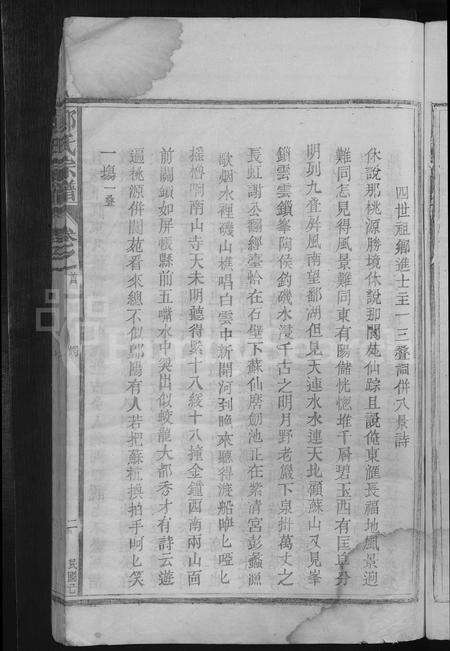 四世祖鄉進士至一三叠詞併八景詩
休說那桃源勝境休說那閬苑仙踪且說俺東鯉長福地風景迥
難同怎見得風景難同東有賜儲恍惚堆千層碧玉西有匡阜分
明列九叠屏風南望鄱湖但見天連水水連天地顧蘇山又見峯
鎖雲雲鎖峯陶侯釣磯水浸千古之明月野老巖下泉掛萬丈之
長虹謝公翻經臺恰在石壁下蘇仙磨劍池正在紫清宮彭蠡源
歌烟水裡磯山樵唱白雲中新開河到晚來聽得渡船聲匕啞匕
搖櫓響南山寺天未明聽得緊十八緩十八撞金鐘西南兩山面
前關鎖如屏帳縣前五嘴水中突出似蛟龍大都秀才有詩云遊
遍桃源併閬苑看來總不似鄱陽有人若把蘇杭換拍手呵匕笑
一塲一叠
氏宗譜
卷之首
二
民國